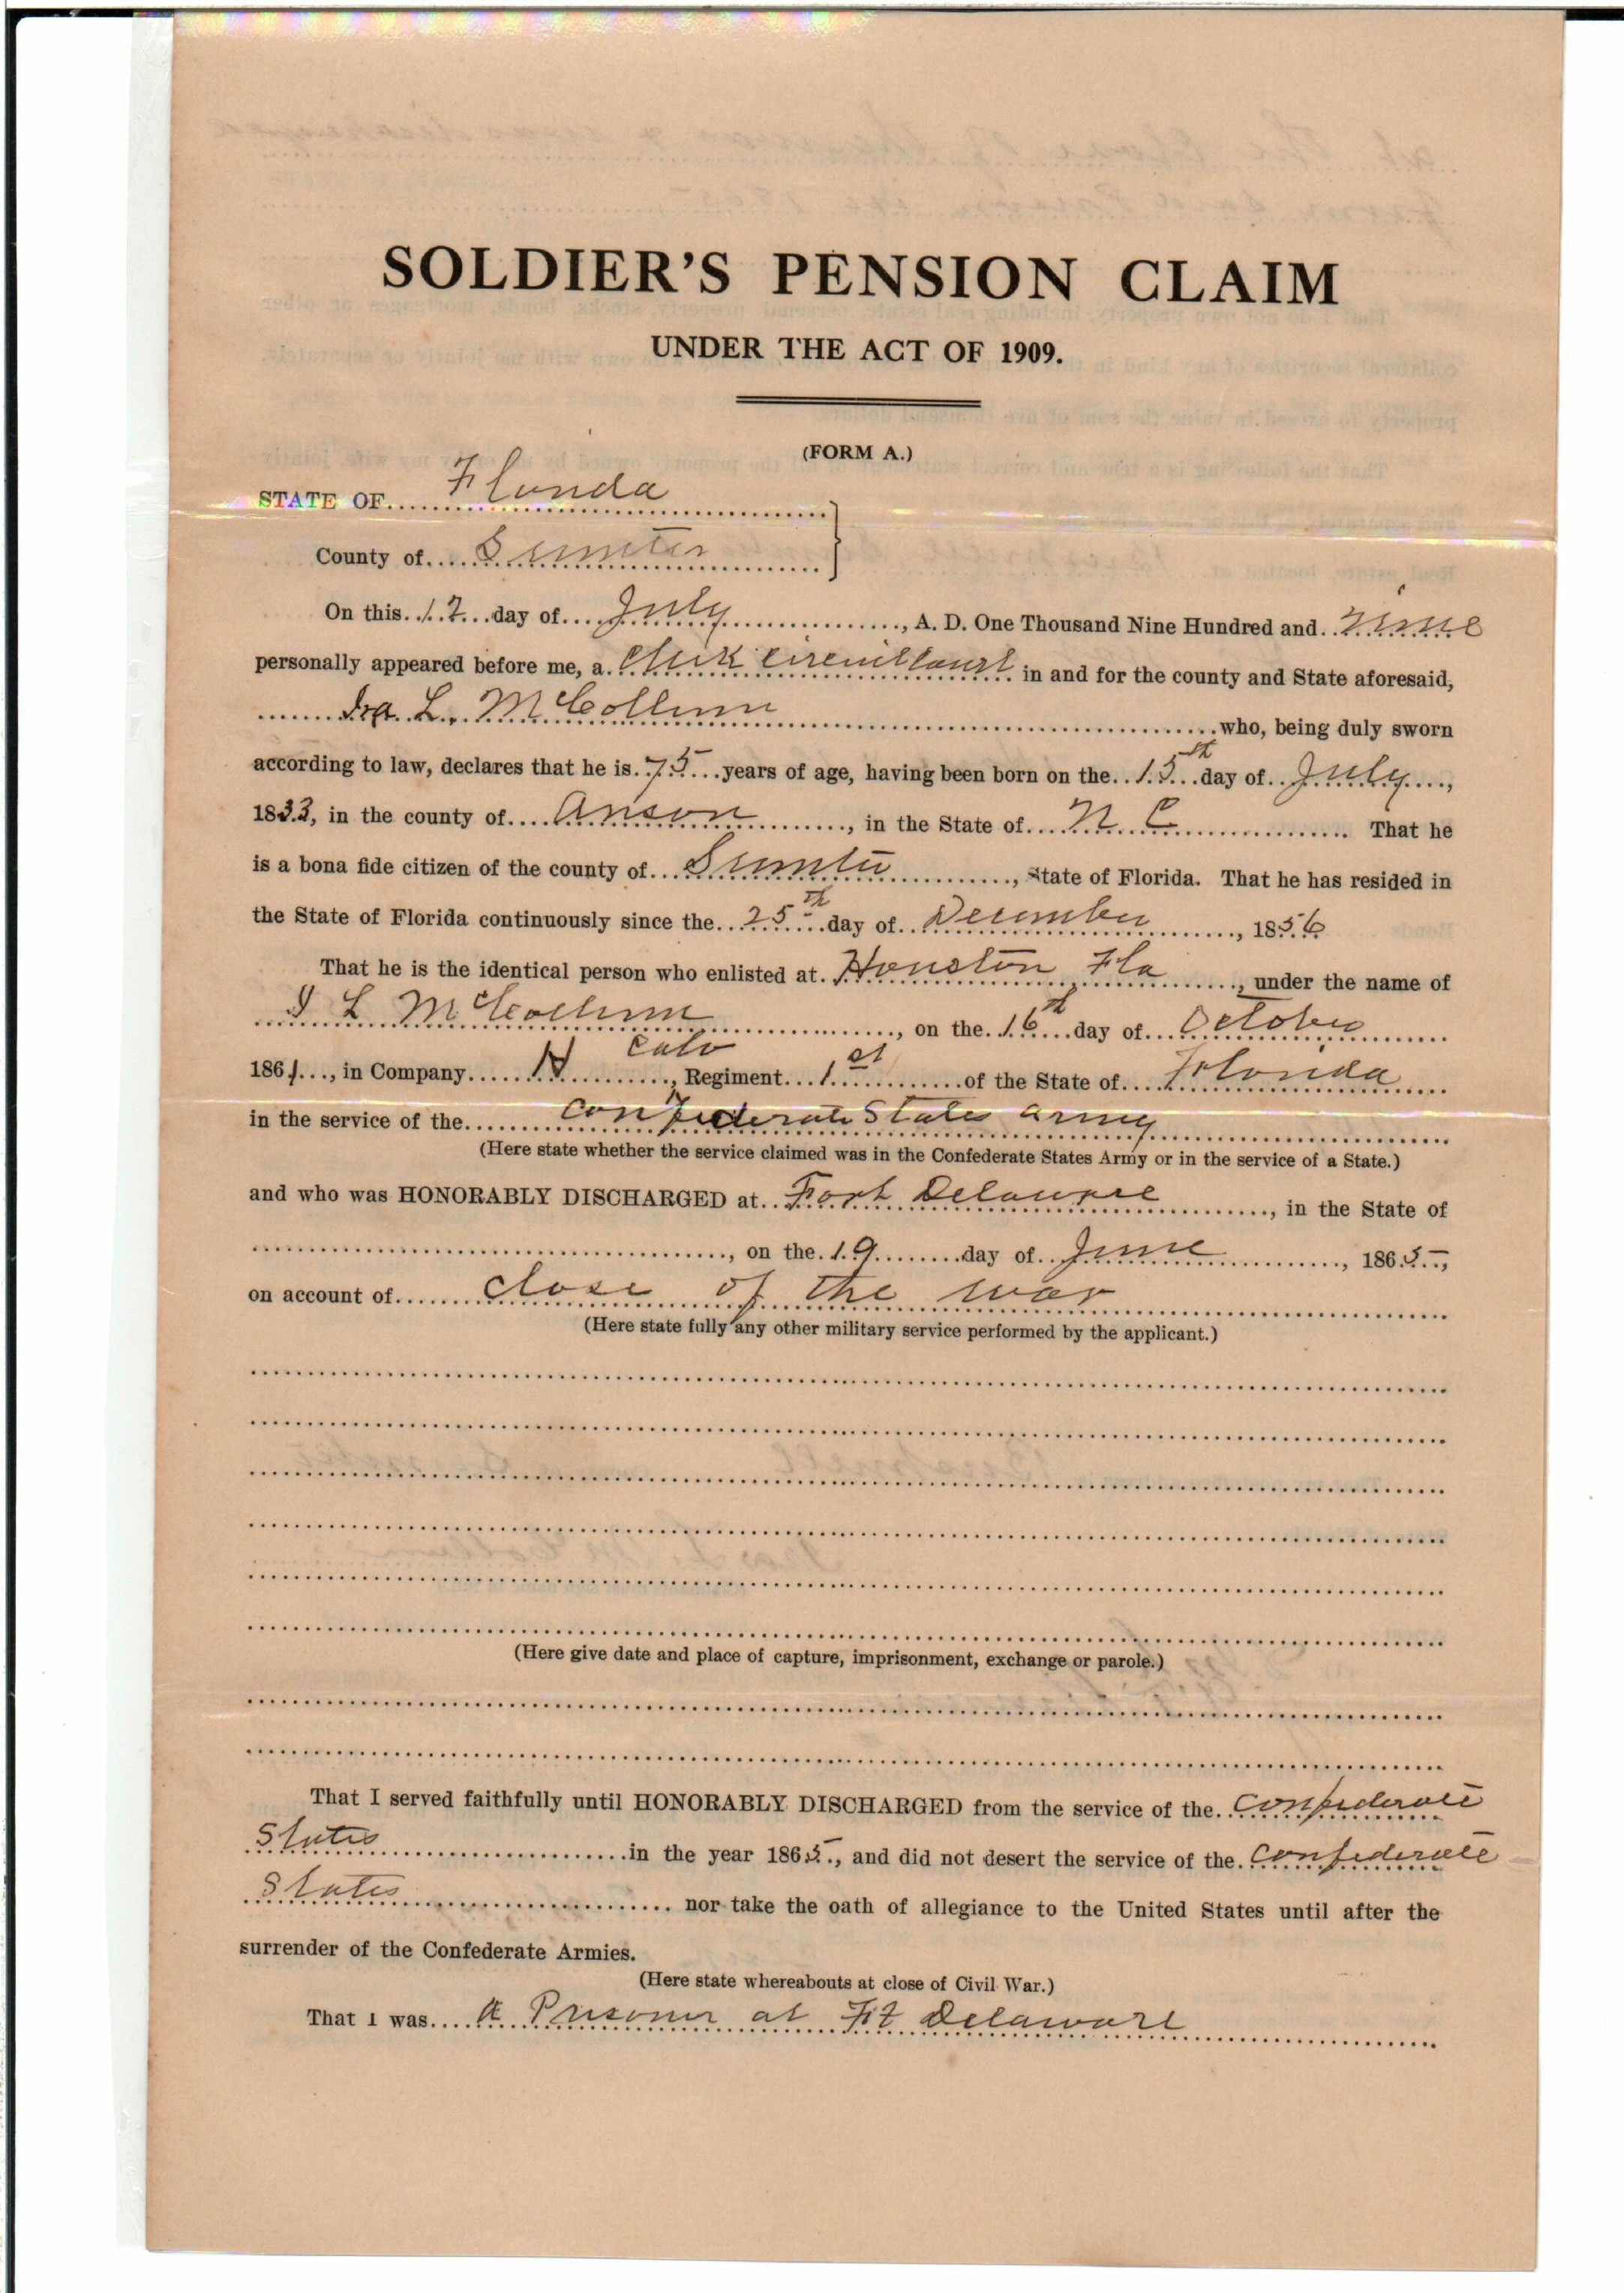 SOLDIER'S PENSION CLAIM
UNDER THE ACT OF 1909.
(FORM A.)
STATE OF Florida
County of Sumter
On this 17 day of July, A. D. One Thousand Nine Hundred and nine
personally appeared before me, a Clerk Circuit Court in and for the county and State aforesaid,
Ira L. McCollum who, being duly sworn
according to law, declares that he is 75 years of age, having been born on the 15th day of July,
1833, in the county of Anson, in the State of N C. That he
is a bona fide citizen of the county of Sumter, State of Florida. That he has resided in
the State of Florida continuously since the 25th day of December, 1856
That he is the identical person who enlisted at Houston, Fla, under the name of
I L McCollum, on the 16th day of October
1861, in Company H Calv, Regiment 1st of the State of Florida
in the service of the Confederate States army
(Here state whether the service claimed was in the Confederate States Army or in the service of a State.)
and who was HONORABLY DISCHARGED at Fort Delaware, in the State of
, on the 19 day of June, 1865,
on account of close of the war
(Here state fully any other military service performed by the applicant.)
(Here give date and place of capture, imprisonment, exchange or parole.)
That I served faithfully until HONORABLY DISCHARGED from the service of the Confederate
States in the year 1865, and did not desert the service of the Confederate
States nor take the oath of allegiance to the United States until after the
surrender of the Confederate Armies.
(Here state whereabouts at close of Civil War.)
That I was a Prisoner at Ft Delaware